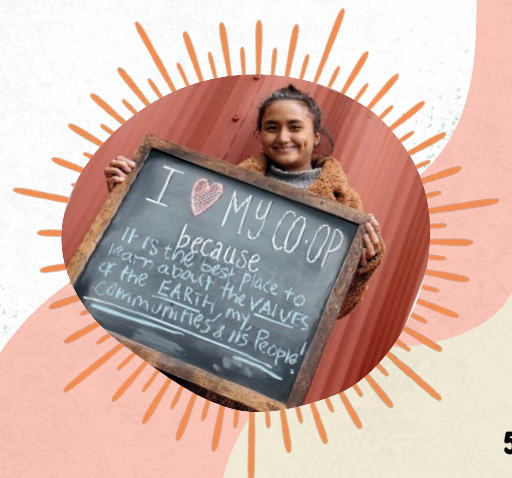 I ♡ MY CO-OP
because
It is the best place to
learn about the VALUES
of the EARTH, my
communities & its People!
5